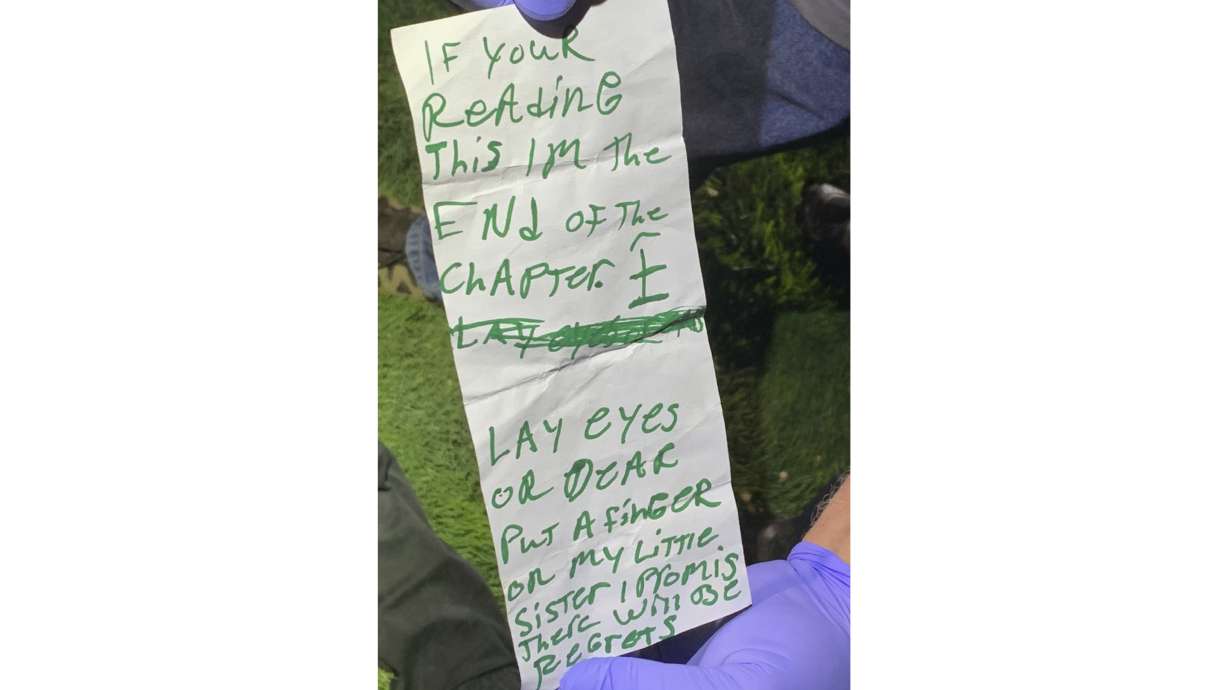 IF YOUR
READING
THIS I'M THE
END OF THE
CHAPTER. I
LAY
LAY EYES
OR DEAR
PUT A FINGER
ON MY LITTLE
SISTER I PROMIS
THERE WILL BE
REGRETS